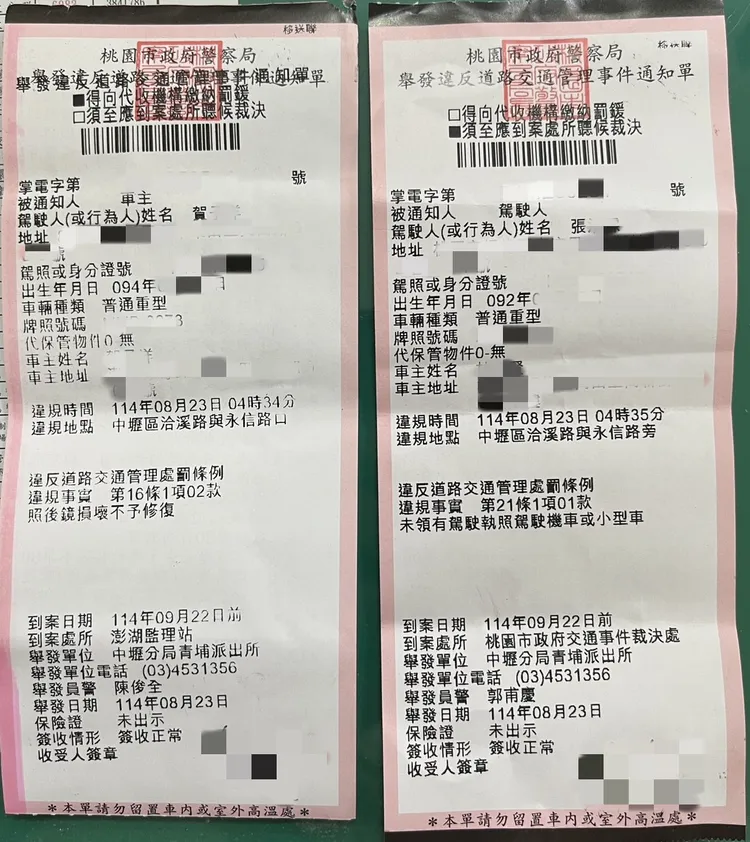 移送聯
桃園市政府警察局
舉發違反道路交通管理事件通知單
■得向代收機構繳納罰鍰
□須至應到案處所聽候裁決
掌電字第 號
被通知人 車主
駕駛人(或行為人)姓名 賀
地址
號
駕照或身分證號
出生年月日 094年
車輛種類 普通重型
牌照號碼
代保管物件0-無
車主姓名
車主地址
違規時間 114年08月23日 04時34分
違規地點 中壢區洽溪路與永信路口
違反道路交通管理處罰條例
違規事實 第16條1項02款
照後鏡損壞不予修復
到案日期 114年09月22日前
到案處所 澎湖監理站
舉發單位 中壢分局青埔派出所
舉發單位電話 (03)4531356
舉發員警 陳俊全
舉發日期 114年08月23日
保險證 未出示
簽收情形 簽收正常
收受人簽章
*本單請勿留置車內或室外高溫處*
移送聯
桃園市政府警察局
舉發違反道路交通管理事件通知單
□得向代收機構繳納罰鍰
■須至應到案處所聽候裁決
掌電字第 號
被通知人 駕駛人
駕駛人(或行為人)姓名 張
地址
駕照或身分證號
出生年月日 092年
車輛種類 普通重型
牌照號碼
代保管物件0-無
車主姓名
車主地址
違規時間 114年08月23日 04時35分
違規地點 中壢區洽溪路與永信路旁
違反道路交通管理處罰條例
違規事實 第21條1項01款
未領有駕駛執照駕駛機車或小型車
到案日期 114年09月22日前
到案處所 桃園市政府交通事件裁決處
舉發單位 中壢分局青埔派出所
舉發單位電話 (03)4531356
舉發員警 郭甫慶
舉發日期 114年08月23日
保險證 未出示
簽收情形 簽收正常
收受人簽章
*本單請勿留置車內或室外高溫處*